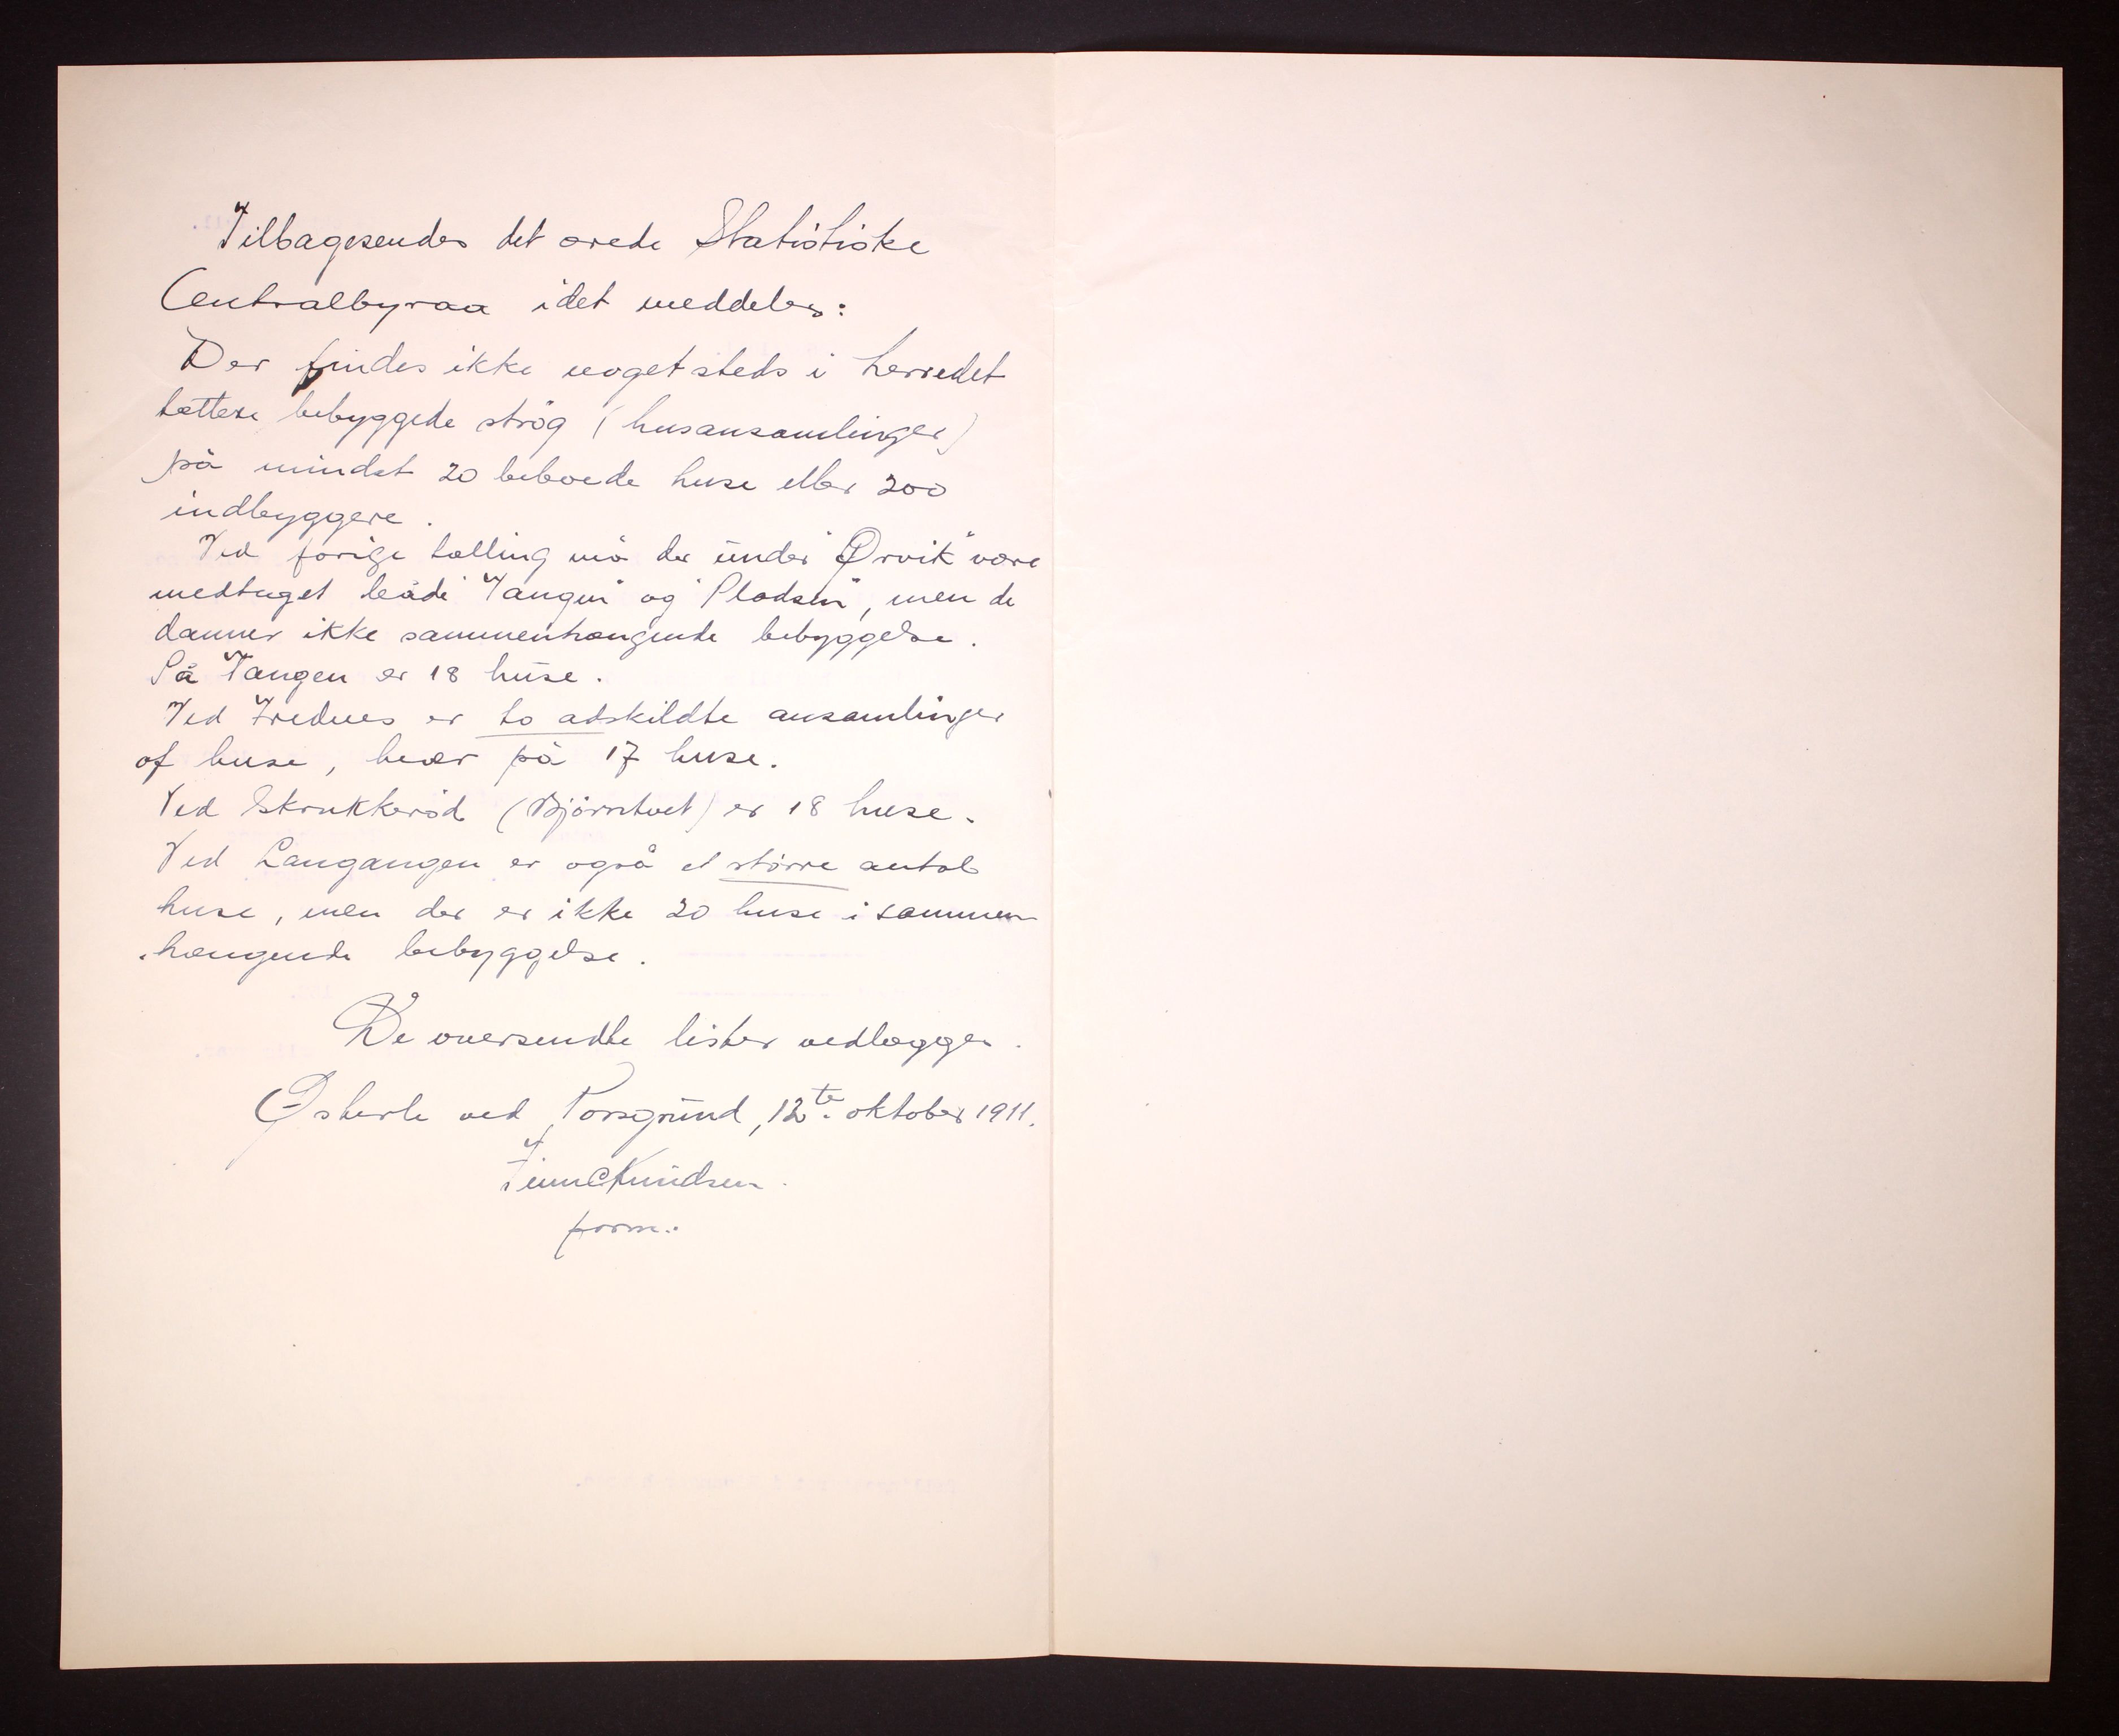 Tilbagesendes det ærede Statistiske
Centralbyraa idet meddeles:
Der findes ikke noget steds i herredet
tættere bebyggede strøg (husansamlinger)
på mindst 20 beboede huse eller 200
indbyggere.
Ved forige tælling må der under "Ørvik" være
medtaget både "Tangen" og "Pladsen", men de
danner ikke sammenhængende bebyggelse.
På Tangen er 18 huse.
Ved Frednes er to adskildte ansamlinger
af huse, hver på 17 huse.
Ved Skrukkerød (Bjørntvet) er 18 huse.
Ved Langangen er også et større antal
huse, men der er ikke 20 huse i sammen
hængende bebyggelse.
De oversendte lister vedlægges.
ved Porsgrund, 12te oktober 1911.
Finn C Knudsen.
form.